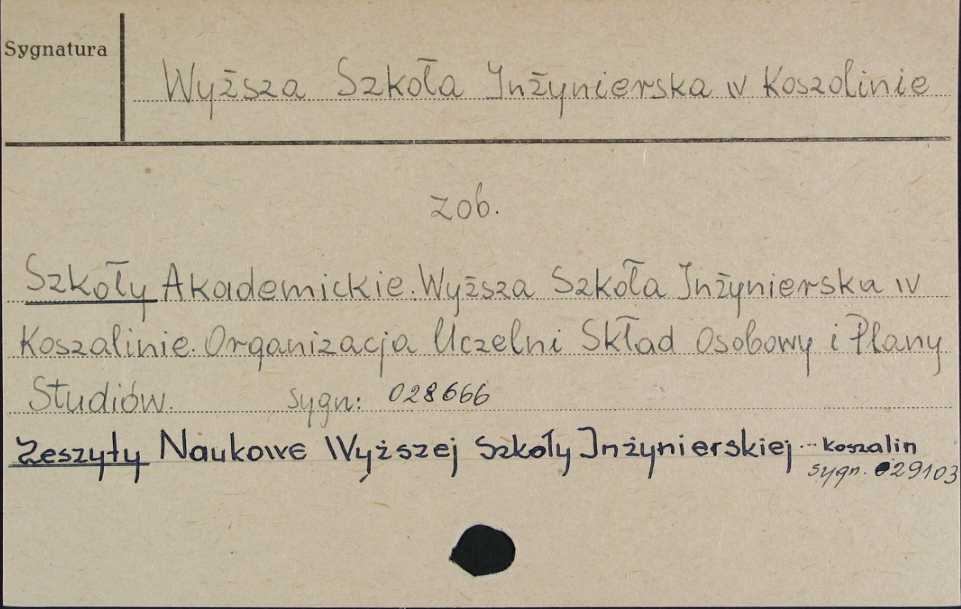 Sygnatura
Wyższa Szkoła Inżynierska w Koszalinie
zob.
Szkoły Akademickie. Wyższa Szkoła Inżynierska w
Koszalinie. Organizacja Uczelni Skład Osobowy i Plany
Studiów. sygn: 028666
Zeszyty Naukowe Wyższej Szkoły Inżynierskiej -- Koszalin
sygn. 029103